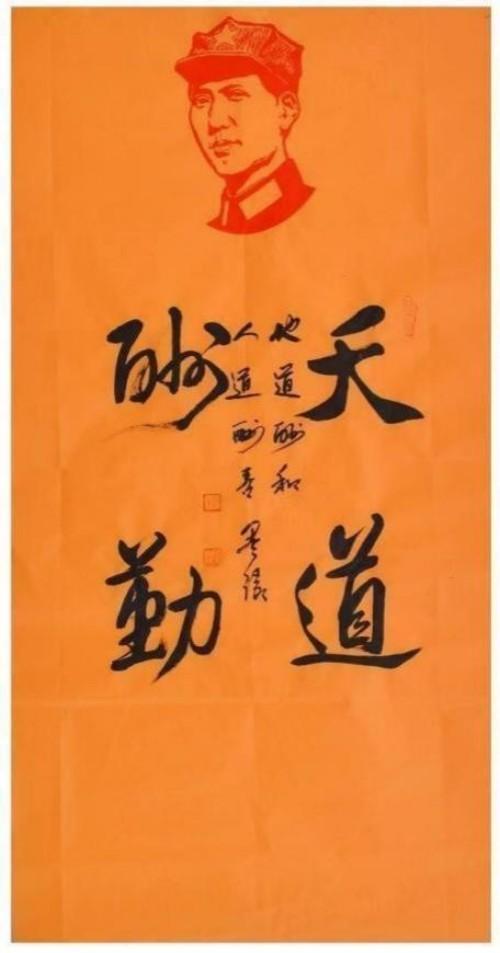 天道
酬勤
地道酬和
人道酬善